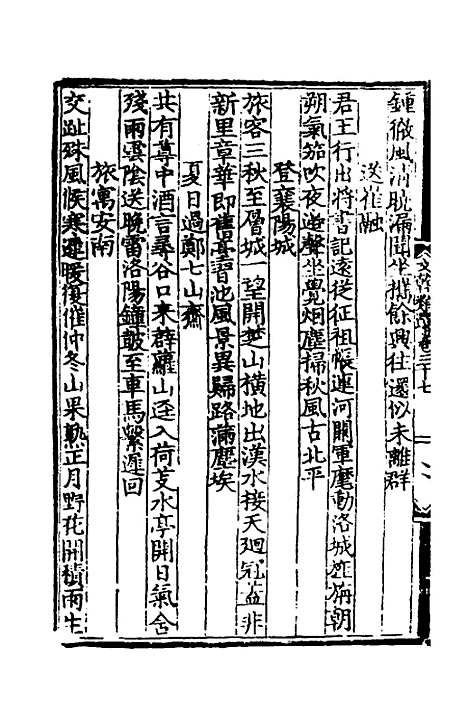 鍾徹風清曉漏聞坐攜餘興往還似未離群
送崔融
君王行出將書記遠從征祖帳連河闕軍麾動洛城旌旃朝
朔氣笳吹夜邊聲坐覺烟塵掃秋風古北平
登襄陽城
旅客三秋至層城一望開楚山橫地出漢水接天迴冠蓋非
新里章華即舊臺習池風景異歸路滿塵埃
夏日過鄭七山齋
共有尊中酒言尋谷口來薜蘿山逕入荷芰水亭開日氣含
殘雨雲陰送晚雷洛陽鐘皷至車馬繫遲回
旅寓安南
交趾殊風候寒遲暖復催仲冬山果熟正月野花開積雨生
文翰類選卷三十七